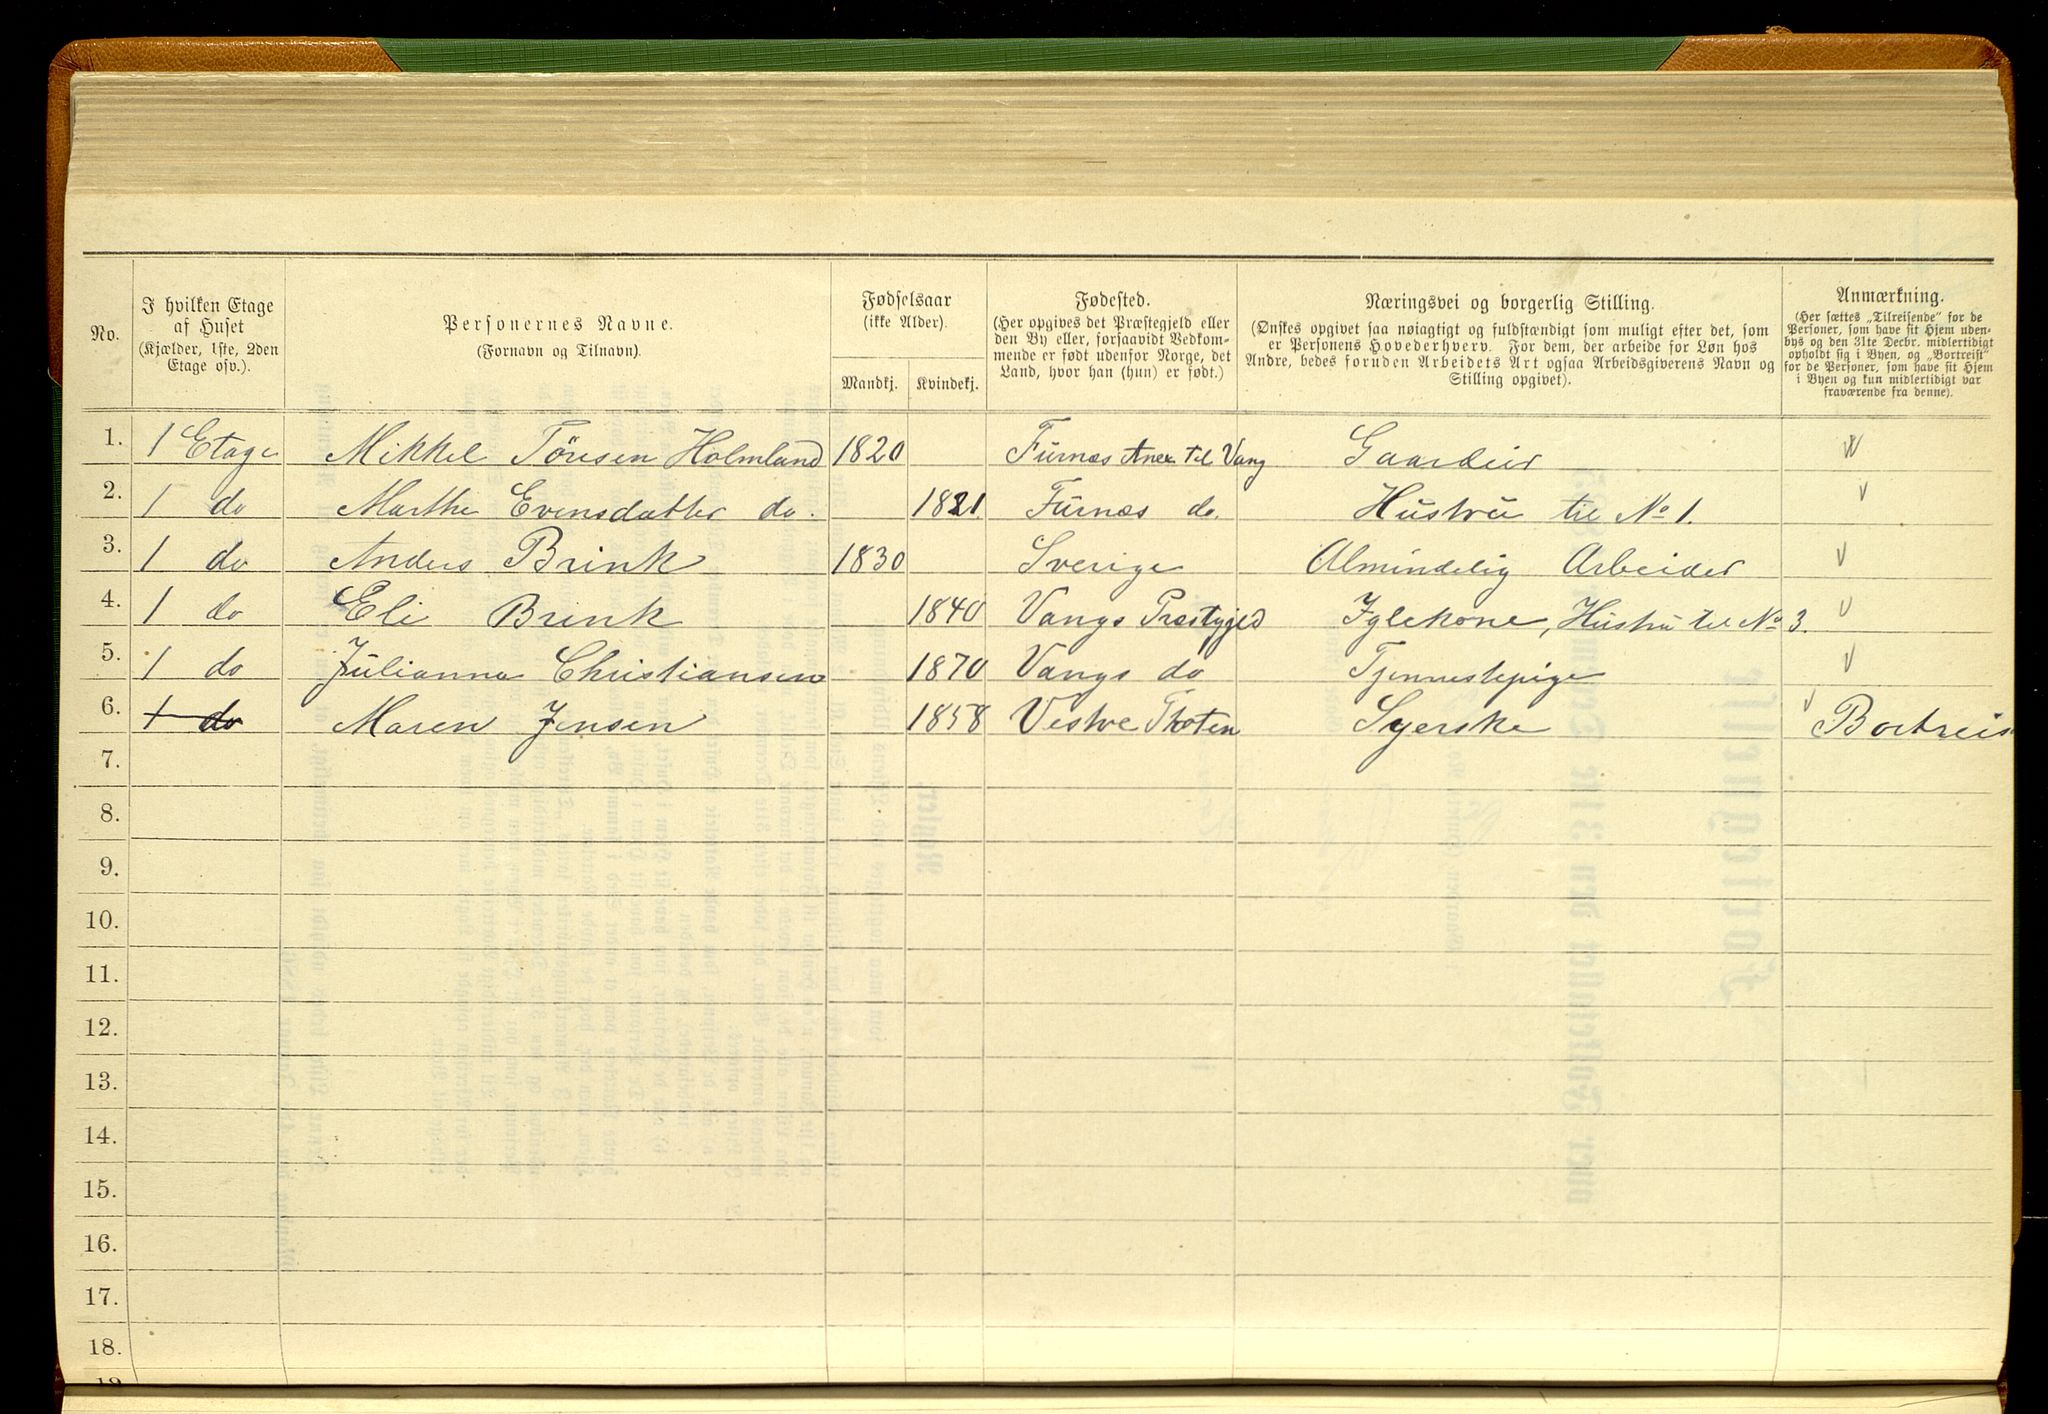 No.
I hvilken Etage
af Huset
(Kjælder, 1ste, 2den
Etage osv.).
Personernes Navne.
(Fornavn og Tilnavn).
Fødselsaar
(ikke Alder).
Mandkj. Kvindekj.
Fødested.
(Her opgives det Præstegjeld eller
den By eller, forsaavidt Vedkom-
mende er født udenfor Norge, det
Land, hvor han (hun) er født.)
Næringsvei og borgerlig Stilling.
(Ønskes opgivet saa nøiagtigt og fuldstændigt som muligt efter det, som
er Personens Hovederhverv. For dem, der arbeide for Løn hos
Andre, bedes foruden Arbeidets Art ogsaa Arbeidsgiverens Navn og
Stilling opgivet).
Anmærkning.
(Her sættes „Tilreisende" for de
Personer, som have sit Hjem uden-
bys og den 31te Decbr. midlertidigt
opholdt sig i Byen, og „Bortreist"
for de Personer, som have sit Hjem
i Byen og kun midlertidigt var
fraværende fra denne).
1. 1 Etage Mikkel Tøresen Holmland 1820 Furnæs Anex til Vang Gaardeier
2. 1 do Marthe Evensdatter do. 1821. Furnæs do. Hustru til No 1.
3. 1 do Anders Brink 1830 Sverige Almindelig Arbeider
4. 1 do Eli Brink 1840 Vangs Præstgjed Iglekone, Hustru til No 3.
5. 1 do Julianna Christiansen 1870 Vangs do Tjennestepige
6. 1 do Maren Jensen 1858 Vestre Thoten Syerske Bortreis
7.
8.
9.
10.
11.
12.
13.
14.
15.
16.
17.
18.
19